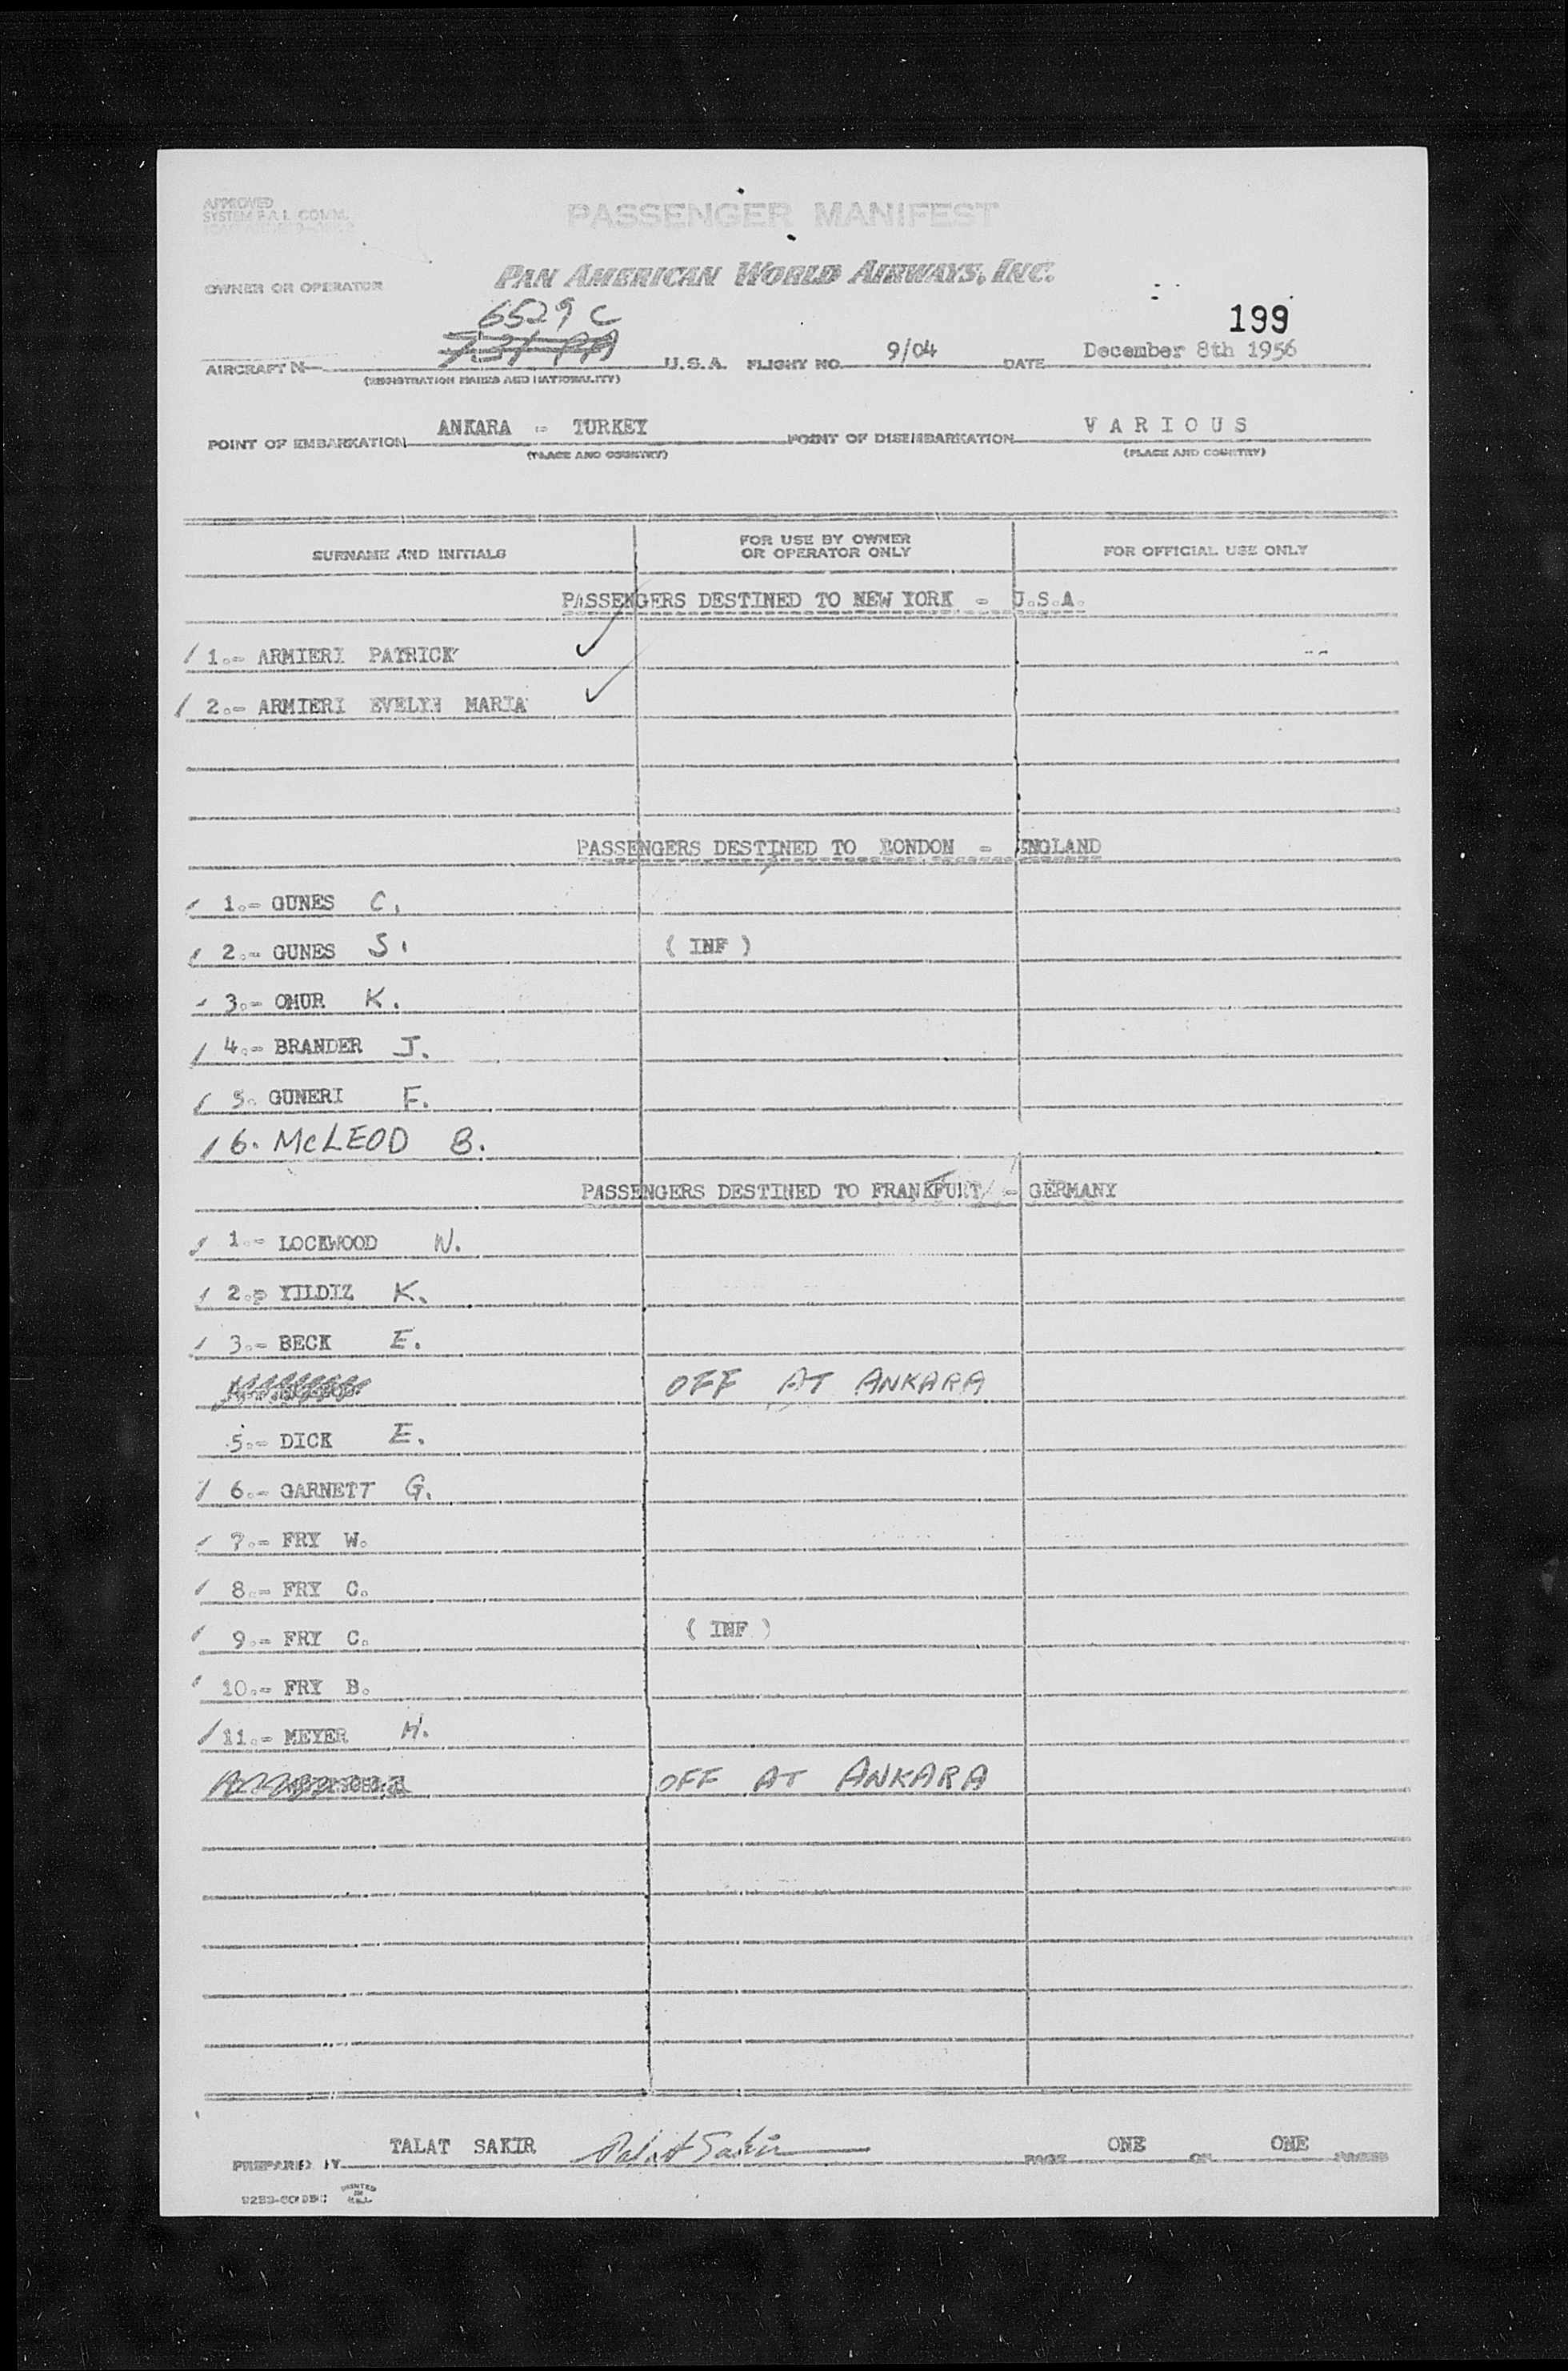 APPROVED
SYSTEM F.A.L. COMM.
PASSENGER MANIFEST
OWNER OR OPERATOR
PAN AMERICAN WORLD AIRWAYS, INC.
6529 C
199
AIRCRAFT N U.S.A. FLIGHT NO. 9/04 DATE December 8th 1956
(REGISTRATION MARKS AND NATIONALITY)
POINT OF EMBARKATION ANKARA - TURKEY POINT OF DISEMBARKATION VARIOUS
(PLACE AND COUNTRY) (PLACE AND COUNTRY)
SURNAME AND INITIALS FOR USE BY OWNER OR OPERATOR ONLY FOR OFFICIAL USE ONLY
PASSENGERS DESTINED TO NEW YORK - U.S.A.
1.- ARMIERI PATRICK
2.- ARMIERI EVELYN MARIA
PASSENGERS DESTINED TO LONDON - ENGLAND
1.- GUNES C.
2.- GUNES S. ( INF )
3.- OMUR K.
4.- BRANDER J.
5. GUNERI F.
6. McLEOD B.
PASSENGERS DESTINED TO FRANKFURT - GERMANY
1.- LOCKWOOD W.
2.p YILDIZ K.
3.- BECK E.
OFF AT ANKARA
5.- DICK E.
6.- GARNETT G.
7.- FRY W.
8.- FRY C.
9.- FRY C. ( INF )
10.- FRY B.
11.- MEYER H.
OFF AT ANKARA
PREPARED BY TALAT SAKIR Talat Sakir PAGE ONE OF ONE PAGES
PRINTED IN U.S.A.